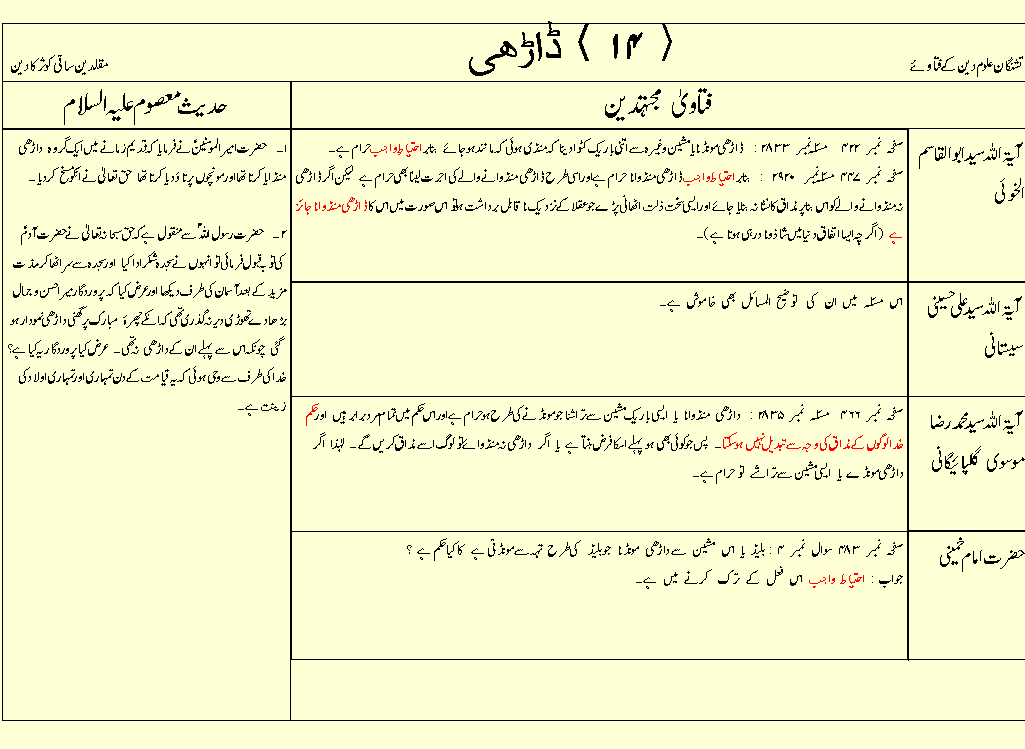 ﴿ ۱۴ ﴾ ڈاڑھی
تشنگان علوم دین کے فتاوے
مقلدین ساقی کوثر کا دین
فتاویٰ مجتہدین
حدیث معصوم علیہ السلام
آیۃ اللہ سید ابوالقاسم
الخوئی
صفحہ نمبر ۴۲۲ مسئلہ نمبر ۲۸۳۳ : ڈاڑھی مونڈنا یا مشین وغیرہ سے اتنی باریک کٹوا دینا کہ منڈی ہوئی کہ مانند ہو جائے بنابر احتیاط واجب حرام ہے۔
صفحہ نمبر ۴۴۷ مسئلہ نمبر ۲۹۲۰ : بنابر احتیاط واجب ڈاڑھی منڈوانا حرام ہے اور اسی طرح ڈاڑھی منڈوانے والے کی اجرت لینا بھی حرام ہے لیکن اگر ڈاڑھی
نہ منڈوانے والے کو اس بنا پر مذاق کا نشانہ بنایا جائے اور ایسی سخت ذلت اٹھانی پڑے جو عقلا کے نزدیک نا قابل برداشت ہو تو اس صورت میں اس کا ڈاڑھی منڈوانا جائز
ہے ( اگرچہ ایسا اتفاق دنیا میں شاذ و نادر ہی ہوتا ہے )۔
آیۃ اللہ سید علی حسینی
سیستانی
اس مسئلہ میں ان کی توضیح المسائل بھی خاموش ہے۔
آیۃ اللہ سید محمد رضا
موسوی گلپائیگانی
صفحہ نمبر ۴۶۶ مسئلہ نمبر ۲۸۳۵ : داڑھی منڈوانا یا ایسی باریک مشین سے تراشنا جو مونڈنے کی طرح ہو حرام ہے اور اس حکم میں تمام مرد برابر ہیں اور حکم
خدا لوگوں کے مذاق کی وجہ سے تبدیل نہیں ہوسکتا۔ پس جو کوئی بھی ہو پہلے اسکا فرض بنتا ہے یا اگر داڑھی نہ منڈوائے تو لوگ اسے مذاق کریں گے۔ لہٰذا اگر
داڑھی مونڈے یا ایسی مشین سے تراشے تو حرام ہے۔
حضرت امام خمینی
صفحہ نمبر ۴۸۳ سوال نمبر ۴ : بلیڈ یا اس مشین سے داڑھی مونڈنا جو بلیڈ کی طرح تہہ سے مونڈتی ہے کا کیا حکم ہے ؟
جواب : احتیاط واجب اس فعل کے ترک کرنے میں ہے۔
۱۔ حضرت امیر المومنینؑ نے فرمایا کہ قدیم زمانے میں ایک گروہ داڑھی
منڈایا کرتا تھا اور مونچوں پر تاؤ دیا کرتا تھا حق تعالیٰ نے انکو مسخ کر دیا۔
۲۔ حضرت رسول اللہؐ سے منقول ہے کہ حق سبحانہ تعالیٰ نے حضرت آدمؑ
کی توبہ قبول فرمائی تو انہوں نے سجدہ شکر ادا کیا اور سجدہ سے سر اٹھا کر مدت
مزید کے بعد آسمان کی طرف دیکھا اور عرض کیا کہ پروردگار میرا حسن و جمال
بڑھا دے تھوڑی دیر نہ گذری تھی کہ انکے چہرۂ مبارک پر گھنی داڑھی نمودار ہو
گئی چونکہ اس سے پہلے ان کے داڑھی نہ تھی۔ عرض کیا پروردگار یہ کیا ہے؟
خدا کی طرف سے وحی ہوئی کہ یہ قیامت کے دن تمہاری اور تمہاری اولاد کی
زینت ہے۔